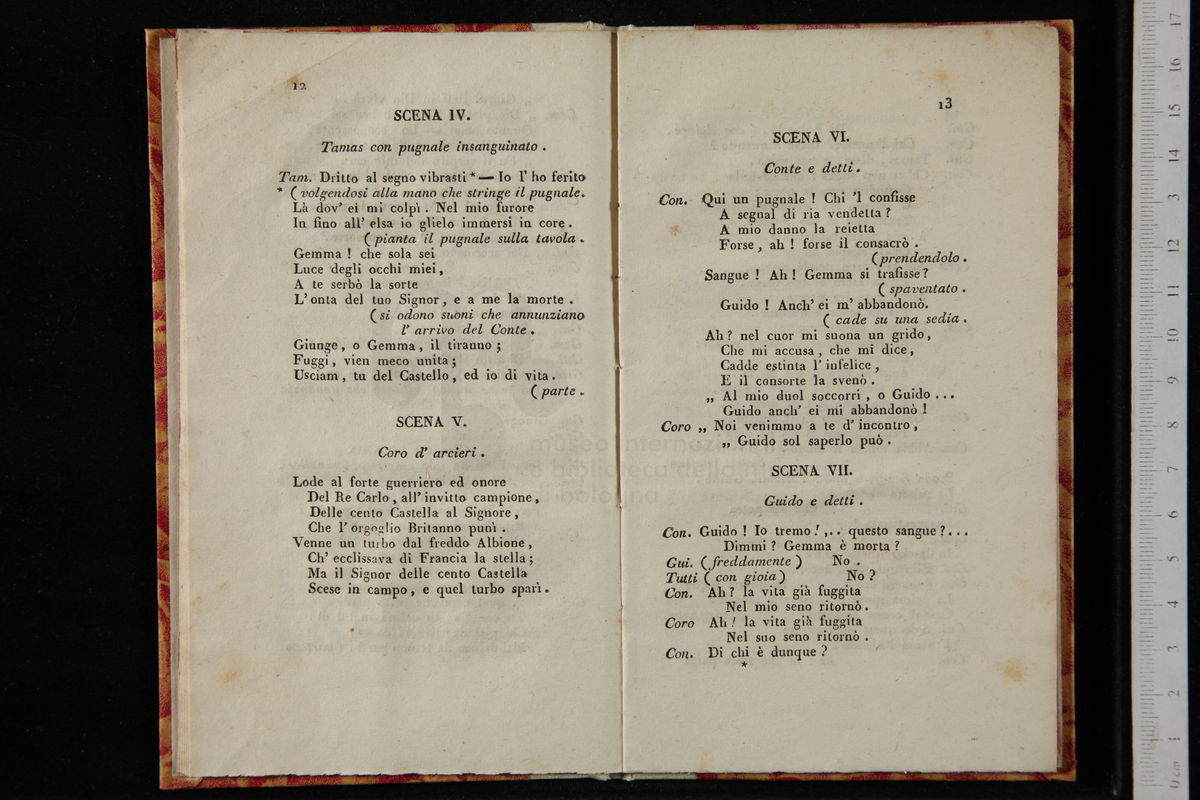 12
SCENA IV.
Tamas con pugnale insanguinato .
Tam. Dritto al segno vibrasti * — Io l' ho ferito
* ( volgendosi alla mano che stringe il pugnale.
Là dov' ei mi colpì . Nel mio furore
In fino all' elsa io glielo immersi in core .
( pianta il pugnale sulla tavola .
Gemma ! che sola sei
Luce degli occhi miei ,
A te serbò la sorte
L' onta del tuo Signor , e a me la morte .
( si odono suoni che annunziano
l' arrivo del Conte .
Giunge , o Gemma , il tiranno ;
Fuggi , vien meco unita ;
Usciam , tu del Castello , ed io di vita .
( parte .
SCENA V.
Coro d' arcieri .
Lode al forte guerriero ed onore
Del Re Carlo , all' invitto campione ,
Delle cento Castella al Signore ,
Che l' orgoglio Britanno punì .
Venne un turbo dal freddo Albione ,
Ch' ecclissava di Francia la stella ;
Ma il Signor delle cento Castella
Scese in campo , e quel turbo sparì .
13
SCENA VI.
Conte e detti .
Con. Qui un pugnale ! Chi 'l confisse
A segnal di ria vendetta ?
A mio danno la reietta
Forse , ah ! forse il consacrò .
( prendendolo .
Sangue ! Ah ! Gemma si trafisse ?
( spaventato .
Guido ! Anch' ei m' abbandonò.
( cade su una sedia .
Ah ? nel cuor mi suona un grido ,
Che mi accusa , che mi dice ,
Cadde estinta l' infelice ,
E il consorte la svenò .
„ Al mio duol soccorri , o Guido ...
Guido anch' ei mi abbandonò !
Coro „ Noi venimmo a te d' incontro ,
„ Guido sol saperlo può .
SCENA VII.
Guido e detti .
Con. Guido ! Io tremo ! ... questo sangue ? ...
Dimmi ? Gemma è morta ?
Gui. ( freddamente ) No .
Tutti ( con gioia ) No ?
Con. Ah ? la vita già fuggita
Nel mio seno ritornò .
Coro Ah ! la vita già fuggita
Nel suo seno ritornò .
Con. Di chi è dunque ?
*
museo internazionale
e biblioteca della musica
di bologna
0 cm 1 2 3 4 5 6 7 8 9 10 11 12 13 14 15 16 17